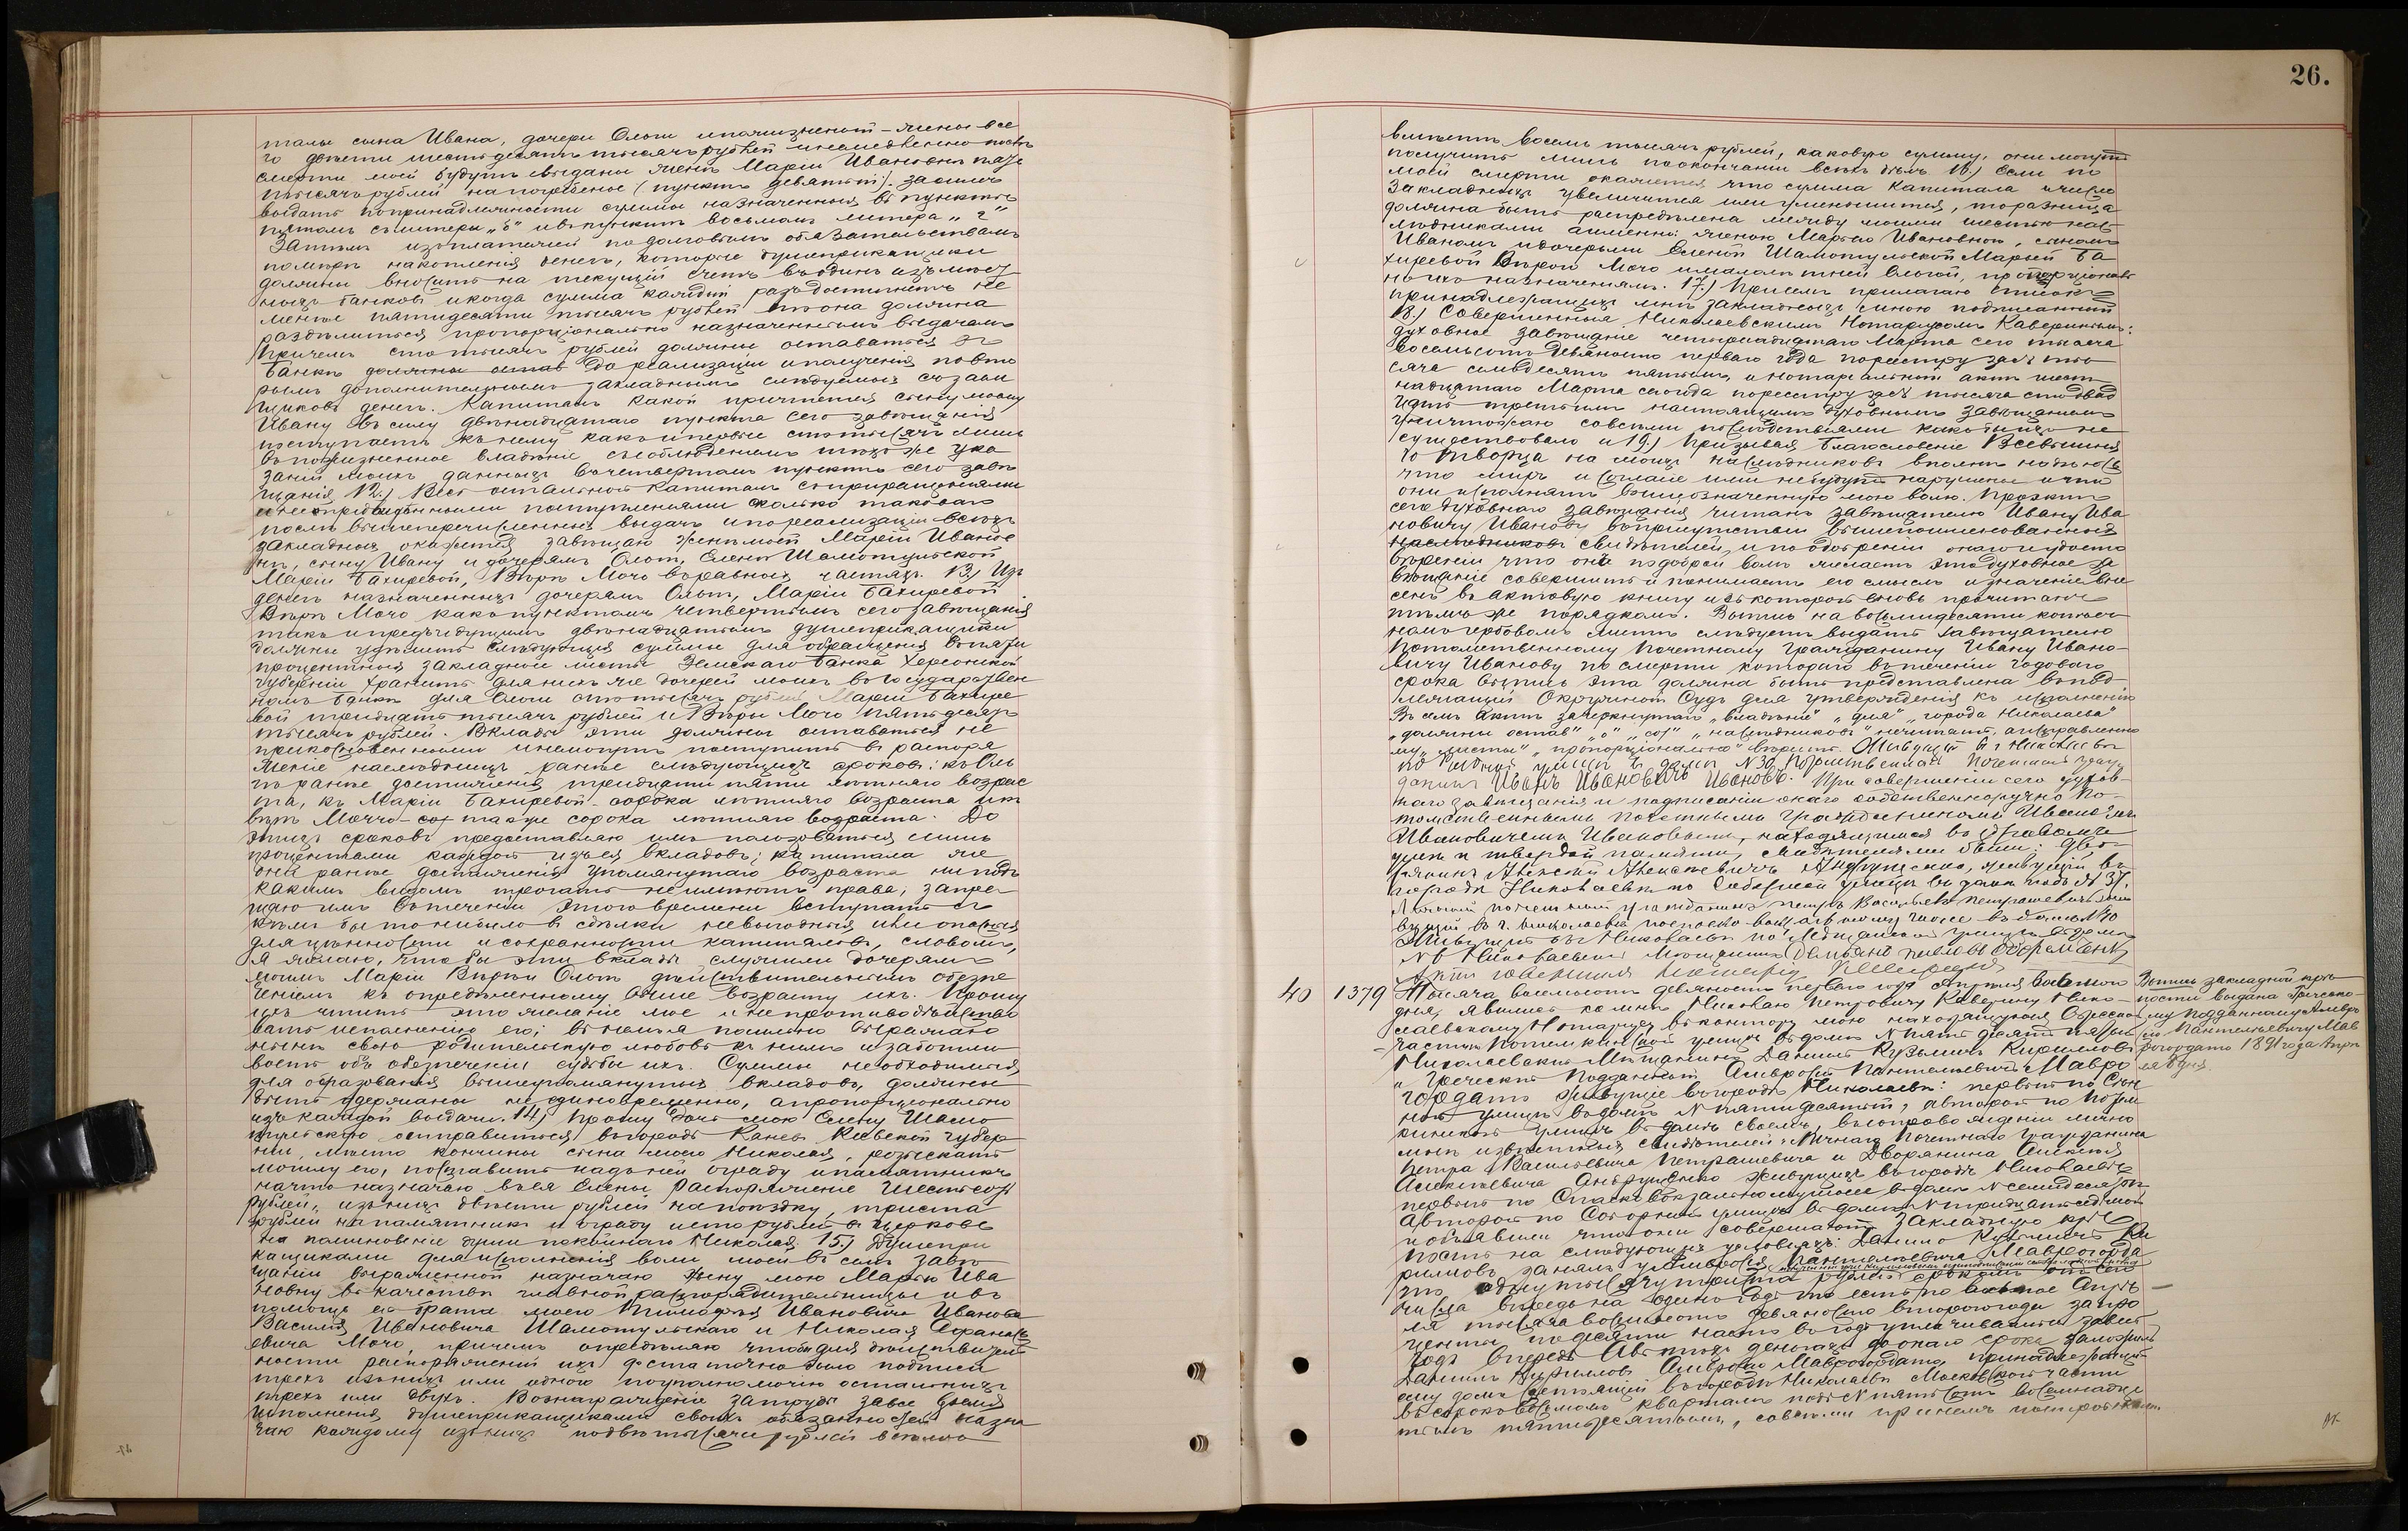 талы сына Ивана, дочери Ольги и пожизненной - жены все
го двести шестьдесятъ тысячъ рублей и немедленно послѣ
смерти моей будутъ выданы женѣ Маріи Ивановнѣ пять
тысячъ рублей на погребеніе (пунктъ девятый).
выдать по принадлежности суммы назначенныя въ пунктѣ
пятомъ съ литеры „б" и въ пунктѣ восьмомъ литера „г"
Затѣмъ изъ платежей по долговымъ обязательствамъ
накопленія денегъ, которые душеприкащики
должны вносить на текущій счетъ въ одинъ изъ мѣст
ныхъ банковъ и когда сумма каждый разъ достигнетъ не
менѣе пятидесяти тысячъ рублей то она должна
раздѣлиться пропорціонально назначеннымъ выдачамъ
Причемъ сто тысячъ рублей должны оставаться въ
Банкѣ должны остав до реализаціи и полученія по вто
рымъ дополнительнымъ закладнымъ слѣдуемыхъ съ заем
щиковъ денегъ. Капиталъ какой причтется сыну моему
Ивану въ силу двѣнадцатаго пункта сего завѣщанія
поступаетъ къ нему какъ и первые сто тысячъ лишь
въ пожизненное владѣніе съ соблюденіемъ тѣхъ же ука
заній моихъ данныхъ въ четвертомъ пунктѣ сего завѣ
щанія. 12.) Весь остальной капиталъ съ приращеніями
и непредвидѣнными поступленіями сколько таковаго
послѣ вышеперечисленныхъ выдачъ и по реализаціи всѣхъ
закладныхъ окажется завѣщаю женѣ моей Маріи Иванов
нѣ, сыну Ивану и дочерямъ Ольгѣ, Еленѣ Шамотульской
Маріи Бахиревой, Вѣрѣ Мочо въ равныхъ частяхъ. 13.) Изъ
денегъ назначенныхъ дочерямъ Ольгѣ, Маріи Бахиревой
Вѣрѣ Мочо какъ пунктомъ четвертымъ сего завѣщанія
такъ и предъидущимъ двѣнадцатымъ душеприкащики
должны удѣлить слѣдующія суммы для обращенія въ
процентныя закладные листы Земскаго Банка Херсонской
губерніи хранить для нихъ же дочерей моихъ въ Государствен
номъ Банкѣ для Ольги сто тысячъ рублей Маріи Бахире
вой тридцать тысячъ рублей и Вѣры Мочо пятьдесятъ
тысячъ рублей. Вклады эти должны оставаться не
прикосновенными и не могутъ поступить въ распоря
женіе наслѣдницъ ранѣе слѣдующихъ сроковъ: къ Оль
гѣ ранѣе достиженія тридцати пяти лѣтняго возрас
та, къ Маріи Бахиревой - сорока лѣтняго возраста и къ
Вѣрѣ Мочо - сор также сорока лѣтняго возраста. До
этихъ сроковъ предоставляю имъ пользоваться лишь
процентами каждой изъ ея вкладовъ; капитала же
они ранѣе достиженія упомянутаго возраста ни подъ
какимъ видомъ трогать не имѣютъ права, запре
щаю имъ въ теченіи этого времени вступать съ
кѣмъ бы то ни было въ сдѣлки невыгодныя или опасныя
для цѣнности и сохранности капиталовъ, словомъ,
я желаю, чтобы эти вклады служили дочерямъ
моимъ Маріи Вѣрѣ и Ольгѣ дѣйствительнымъ обезпе
ченіемъ къ опредѣленному выше возрасту ихъ. Прошу
ихъ чтить это желаніе мое и не противодѣйство
вать исполненію его;
свою родительскую любовь къ нимъ и заботли
вость объ обезпеченіи судьбы ихъ. Суммы необходимыя
для образованія вышеупомянутыхъ вкладовъ, должны
быть удержаны не единовременно, а пропорціонально
изъ каждой выдачи. 14) Прошу дочь мою Елену Шамо
тульскую отправиться въ городъ Каневъ Кіевской губер
ніи, мѣсто кончины сына моего Николая, розыскать
могилу его, поставить надъ ней ограду и памятникъ
на что назначаю въ ея Елены распоряженіе шестьсотъ
рублей, изъ нихъ двѣсти рублей на поѣздку, триста
рублей на памятникъ и ограду и сто рублей въ церковь
на поминовеніе души покойнаго Николая. 15.) Душепри
кащиками для исполненія воли моей въ семъ завѣ
щаніи выраженной назначаю жену мою Марію Ива
новну въ качествѣ главной распорядительницы и въ
помощь ей брата моего Ивановича Иванова
Василія Ивановича Шамотульскаго и Николая
евича Мочо, причемъ опредѣляю чтобы для дѣйствитель
ности распоряженій ихъ достаточно было подписи
трехъ изъ нихъ или одного по уполномочію остальныхъ
трехъ или двухъ. Вознагражденіе за труды за все время
исполненія душеприкащиками своихъ обязанностей назна
чаю каждому изъ нихъ по двѣ тысячи рублей а всего
26.
восемь тысячъ рублей, каковую сумму, они могутъ
получить лишь по окончаніи всѣхъ дѣлъ. 16.) Если по
моей смерти окажется что сумма капитала и число
закладныхъ увеличится или уменьшится, то разница
должна быть распредѣлена между моими шестью нас
лѣдниками а именно: женою Маріею Ивановною, сыномъ
Иваномъ и дочерьми Еленой Шамотульской Маріей Ба
хиревой Вѣрой Мочо и малолѣтней Ольгой, пропорціональ
но ихъ назначеніямъ. 17.) При семъ прилагаю списокъ
принадлежащихъ мнѣ закладныхъ мною подписанный
18.) Совершенныя Николаевскимъ Нотаріусомъ Каверинымъ:
духовное завѣщаніе четырнадцатаго Марта сего тысяча
восемьсотъ девяносто перваго года по реестру за № ты
сяча семьдесятъ пятымъ, и нотаріальный актъ шест
надцатаго Марта сего года по реестру за № тысяча сто двад
цать третьимъ настоящимъ духовнымъ завѣщаніемъ
уничтожаю со всѣми послѣдствіями какъ бы ихъ не
существовало и 19.) Призывая благословеніе Всевышня
го Творца на моихъ наслѣдниковъ вполнѣ надѣюсь
что миръ и согласіе ими не будутъ нарушены и что
они исполнятъ вышеозначенную мою волю. Проэктъ
сего духовнаго завѣщанія читанъ завѣщателю Ивану Ива
новичу Иванову въ присутствіи вышепоименованныхъ
наслѣдниковъ свидѣтелей, и по одобреніи онаго и удосто
вѣреніи что онъ по доброй волѣ желаетъ это духовное за
вѣщаніе совершить и понимаетъ его смыслъ и значеніе вне
сенъ въ актовую книгу изъ которой вновь прочитанъ
тѣмъ же порядкомъ. Выпись на восьмидесяти копѣеч
номъ гербовомъ листѣ слѣдуетъ выдать завѣщателю
Потомственному Почетному Гражданину Ивану Ивано-
вичу Иванову по смерти котораго въ теченіи годоваго
срока выпись эта должна быть представлена въ под
лежащій Окружной Судъ для утвержденія къ исполненію
Въ семъ актѣ зачеркнутаго „владѣніе" „для" „города Николаева"
„должны остав" „о" „сор" „наслѣдниковъ" не читать, а исправленно
му „листы" „пропорціонально" вѣрить. Живущій въ г. Николаевѣ
по улицѣ въ домѣ N 30 Потомственный Почетный граж
данинъ Иванъ Ивановичъ Ивановъ. При совершеніи сего духов-
наго завѣщанія и подписаніи онаго собственноручно По-
томственнымъ Почетнымъ Гражданиномъ Иваномъ
Ивановичемъ Ивановымъ, находящимся въ здравомъ
умѣ и твердой памяти, свидѣтелями были: Дво-
рянинъ Алексѣй Алексѣевичъ Андрущенко, живущій въ
городѣ Николаевѣ по Соборной улицѣ въ домѣ подъ № 37.
Личный почетный гражданинъ Петръ Васильевъ Петрашевичъ жи
вущій въ г. Николаевѣ по Спасско-вокзальному шоссе въ домѣ N 70
Живущій въ г. Николаевѣ по улицѣ въ домѣ
N 6 Николаевскій Мѣщанинъ
Актъ совершилъ Нотаріусъ
40 1379 Тысяча восемьсотъ девяносто перваго года Апрѣля восьмого
дня, явились ко мнѣ Николаю Петровичу Каверину Нико-
лаевскому Нотаріусу въ контору мою находящуюся Одесской
части по Потемкинской улицѣ въ домѣ N пятьдесятъ пятымъ
Николаевскій Мѣщанинъ Даніилъ Кузьминъ Кириловъ
и Греческій Подданный Амвросій Пантелѣевичъ Мавро
гордато живущіе въ городѣ Николаевѣ: первый по Сѣн
ной улицѣ въ домѣ N пятидесятый, а второй по Потем
кинской улицѣ въ домѣ своемъ, въ сопровожденіи лично
мнѣ извѣстныхъ свидѣтелей: Личнаго Почетнаго Гражданина
Петра Васильевича Петрашевича и Дворянина Алексѣя
Алексѣевича Андрущенко живущихъ въ городѣ Николаевѣ
первый по Спасско вокзальному шоссе въ домѣ N семидесятомъ
а второй по Соборной улицѣ въ домѣ N тридцать седьмой
и объявили что они совершаютъ закладную крѣ
пость на слѣдующихъ условіяхъ: Данило Кузьминъ Ки
риловъ занялъ у Амвросія Пантелѣевича Маврогорда
то одну тысячу триста рублей срокомъ отъ сего
числа впредь на одинъ годъ то есть по восьмое Апрѣ
ля тысяча восемьсотъ девяносто второго года за про
центы по десяти на сто въ годъ уплачиваемыхъ за весь
годъ впередъ. Въ тѣхъ деньгахъ до онаго срока заложилъ
Даніилъ Кириловъ Амвросію Маврогордато, принадлежащій
ему домъ состоящій въ городѣ Николаевѣ Московской части
въ сорокъ восьмомъ кварталѣ подъ N пятьсотъ восемнадца
тымъ пятьдесятымъ, со всѣми при немъ постройками
Выпись закладной крѣ
пости выдана Греческо-
му подданному Амвро
сію Пантелѣевичу Мав
рогордато 1891 года Апрѣ
ля 8 дня.